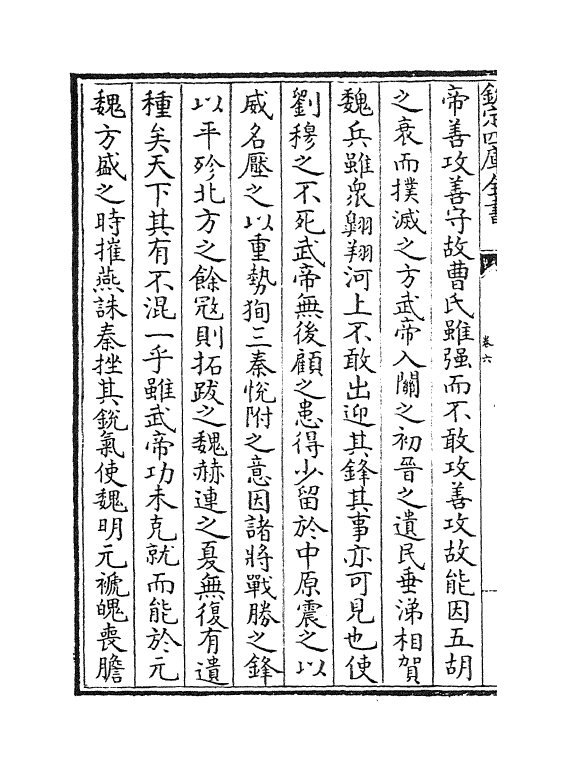 欽定四庫全書
卷六
帝善攻善守故曹氏雖强而不敢攻善攻故能因五胡
之衰而撲滅之方武帝入關之初晉之遺民垂涕相賀
魏兵雖衆翺翔河上不敢出迎其鋒其事亦可見也使
劉穆之不死武帝無後顧之患得少留於中原震之以
威名壓之以重勢狥三秦悅附之意因諸將戰勝之鋒
以平殄北方之餘冦則拓跋之魏赫連之夏無復有遺
種矣天下其有不混一乎雖武帝功未克就而能於元
魏方盛之時摧燕誅秦挫其銳氣使魏明元褫魄喪膽